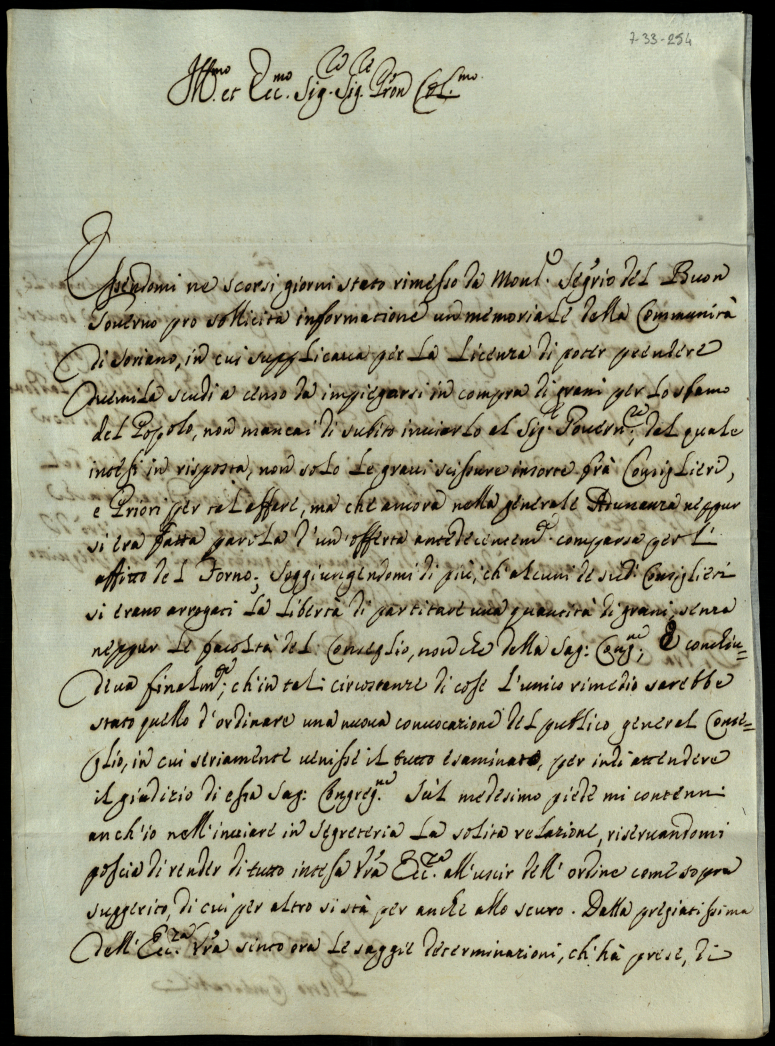 7-33-254
Ill.mo et Ecc.mo Sig.re Sig.re Pron Col.mo
Essendomi ne scorsi giorni stato rimesso da Mons.r Segrio del Buon
Governo pro sollicita informatione un memoriale della Communità
di Soriano, in cui supplicava per la licenza di poter prendere
duemila scudi a censo da impiegarsi in compra di grani per lo sfamo
del Popolo, non mancai di subito inviarlo al Sig.e Govern.re, dal quale
intesi in risposta, non solo le gravi scissure insorte frà Consiglieri,
e Priori per tal affare, ma che ancora nella generale Adunanza neppur
si era fatta parola d'un'offerta antecedentem.te comparsa per l'
affitto del Forno; soggiungendomi di più, ch'alcuni de sud.i Consiglieri
si erano arrogati la libertà di partitare una quantità di grani, senza
neppur le facoltà del Conseglio, non che della Sag: Cong.ne; E conclu=
deva finalm.te, ch'in tali circostanze di cose l'unico rimedio sarebbe
stato quello d'ordinare una nuova convocazione del publico general Conse=
glio, in cui seriamente venisse il tutto esaminato, per indi attendere
il giuditio di essa Sag: Congreg.ne Sùl medesimo piede mi contenni
anch'io nell'inviare in Segreteria la solita relazione, riservandomi
poscia di render di tutto intesa Vrã Ecc.za all'uscir dell'ordine come sopra
suggerito, di cui per altro si stà per anche allo scuro. Dalla pregiatissima
dell'Ecc.za Vrã sento ora le saggie determinazioni, ch'hà prese, di